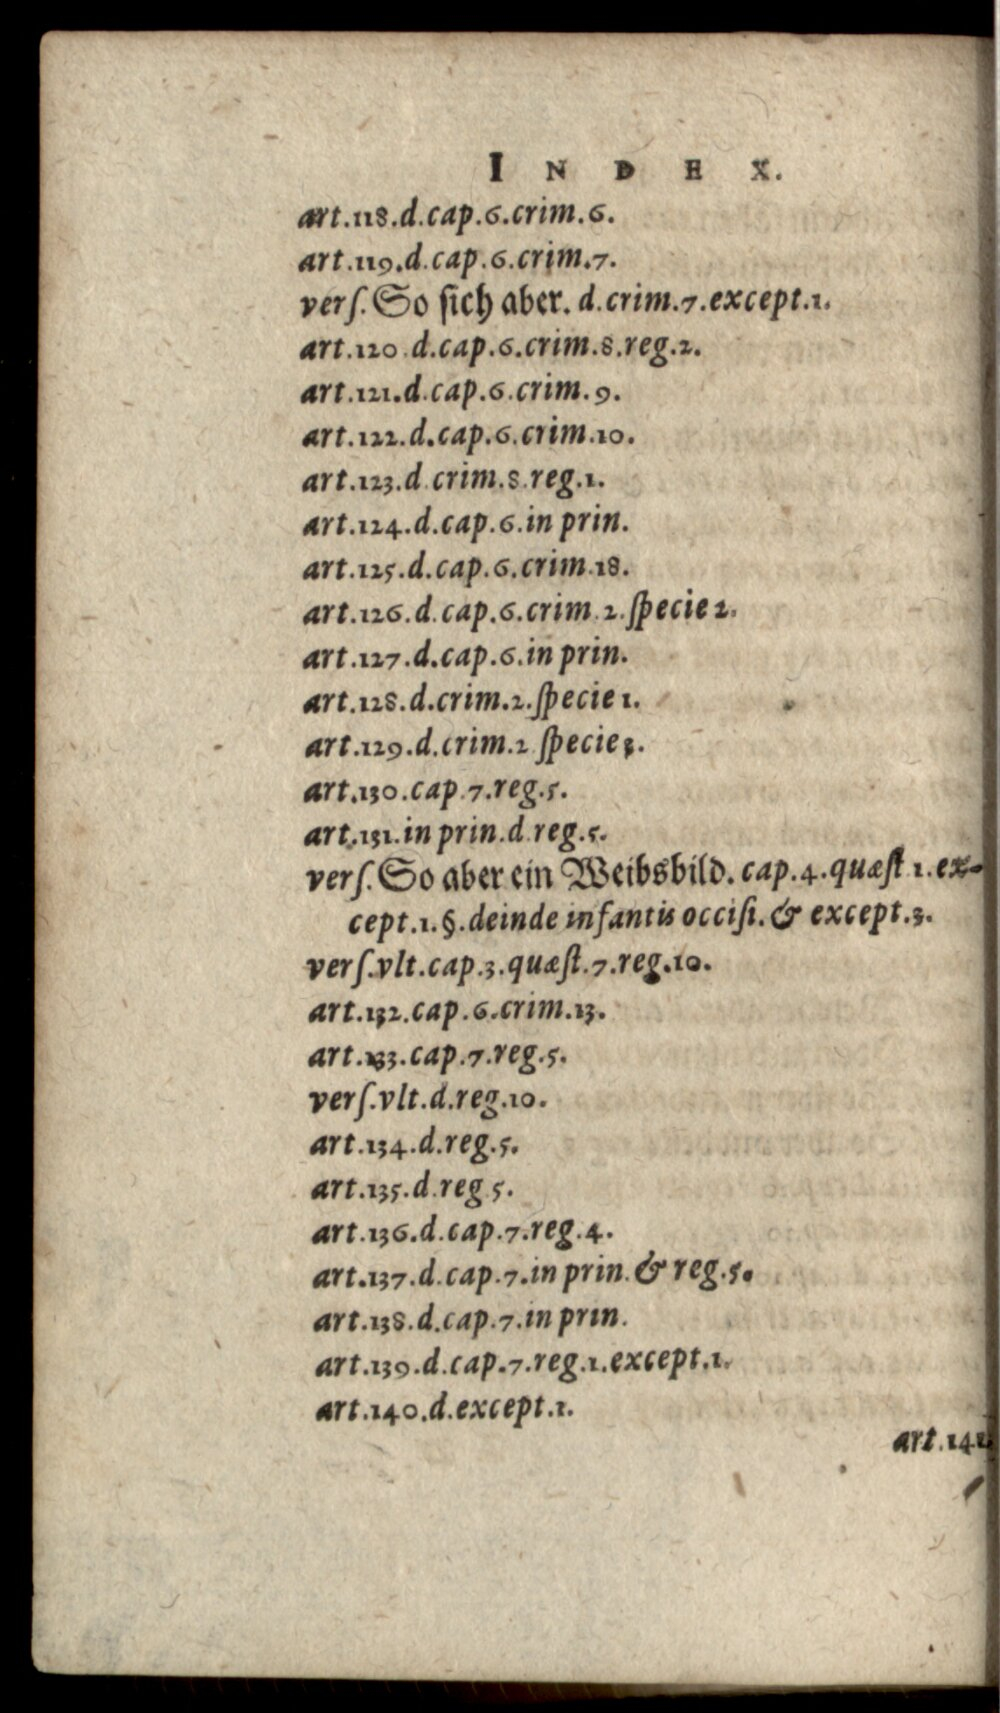 INDEX.
art.118.d.cap.6.crim.6.
art.119.d.cap.6.crim.7.
verſ. So ſich aber. d.crim.7.except.1.
art.120.d.cap.6.crim.8.reg.2.
art.121.d.cap.6.crim.9.
art.122.d.cap.6.crim.10.
art.123.d.crim.8.reg.1.
art.124.d.cap.6.in prin.
art.125.d.cap.6.crim.18.
art.126.d.cap.6.crim.2.ſpecie 2.
art.127.d.cap.6.in prin.
art.128.d.crim.2.ſpecie 1.
art.129.d.crim.2 ſpecie 3.
art.130.cap.7.reg.5.
art.131.in prin.d.reg.5.
verſ. So aber ein Weibsbild. cap.4.quæſt 1.ex-
cept.1.§.deinde infantis occiſi.& except.3.
verſ.vlt.cap.3.quæſt.7.reg.10.
art.132.cap.6.crim.13.
art.133.cap.7.reg.5.
verſ.vlt.d.reg.10.
art.134.d.reg.5.
art.135.d.reg 5.
art.136.d.cap.7.reg.4.
art.137.d.cap.7.in prin.& reg.5.
art.138.d.cap.7.in prin.
art.139.d.cap.7.reg.1.except.1.
art.140.d.except.1.
art.141